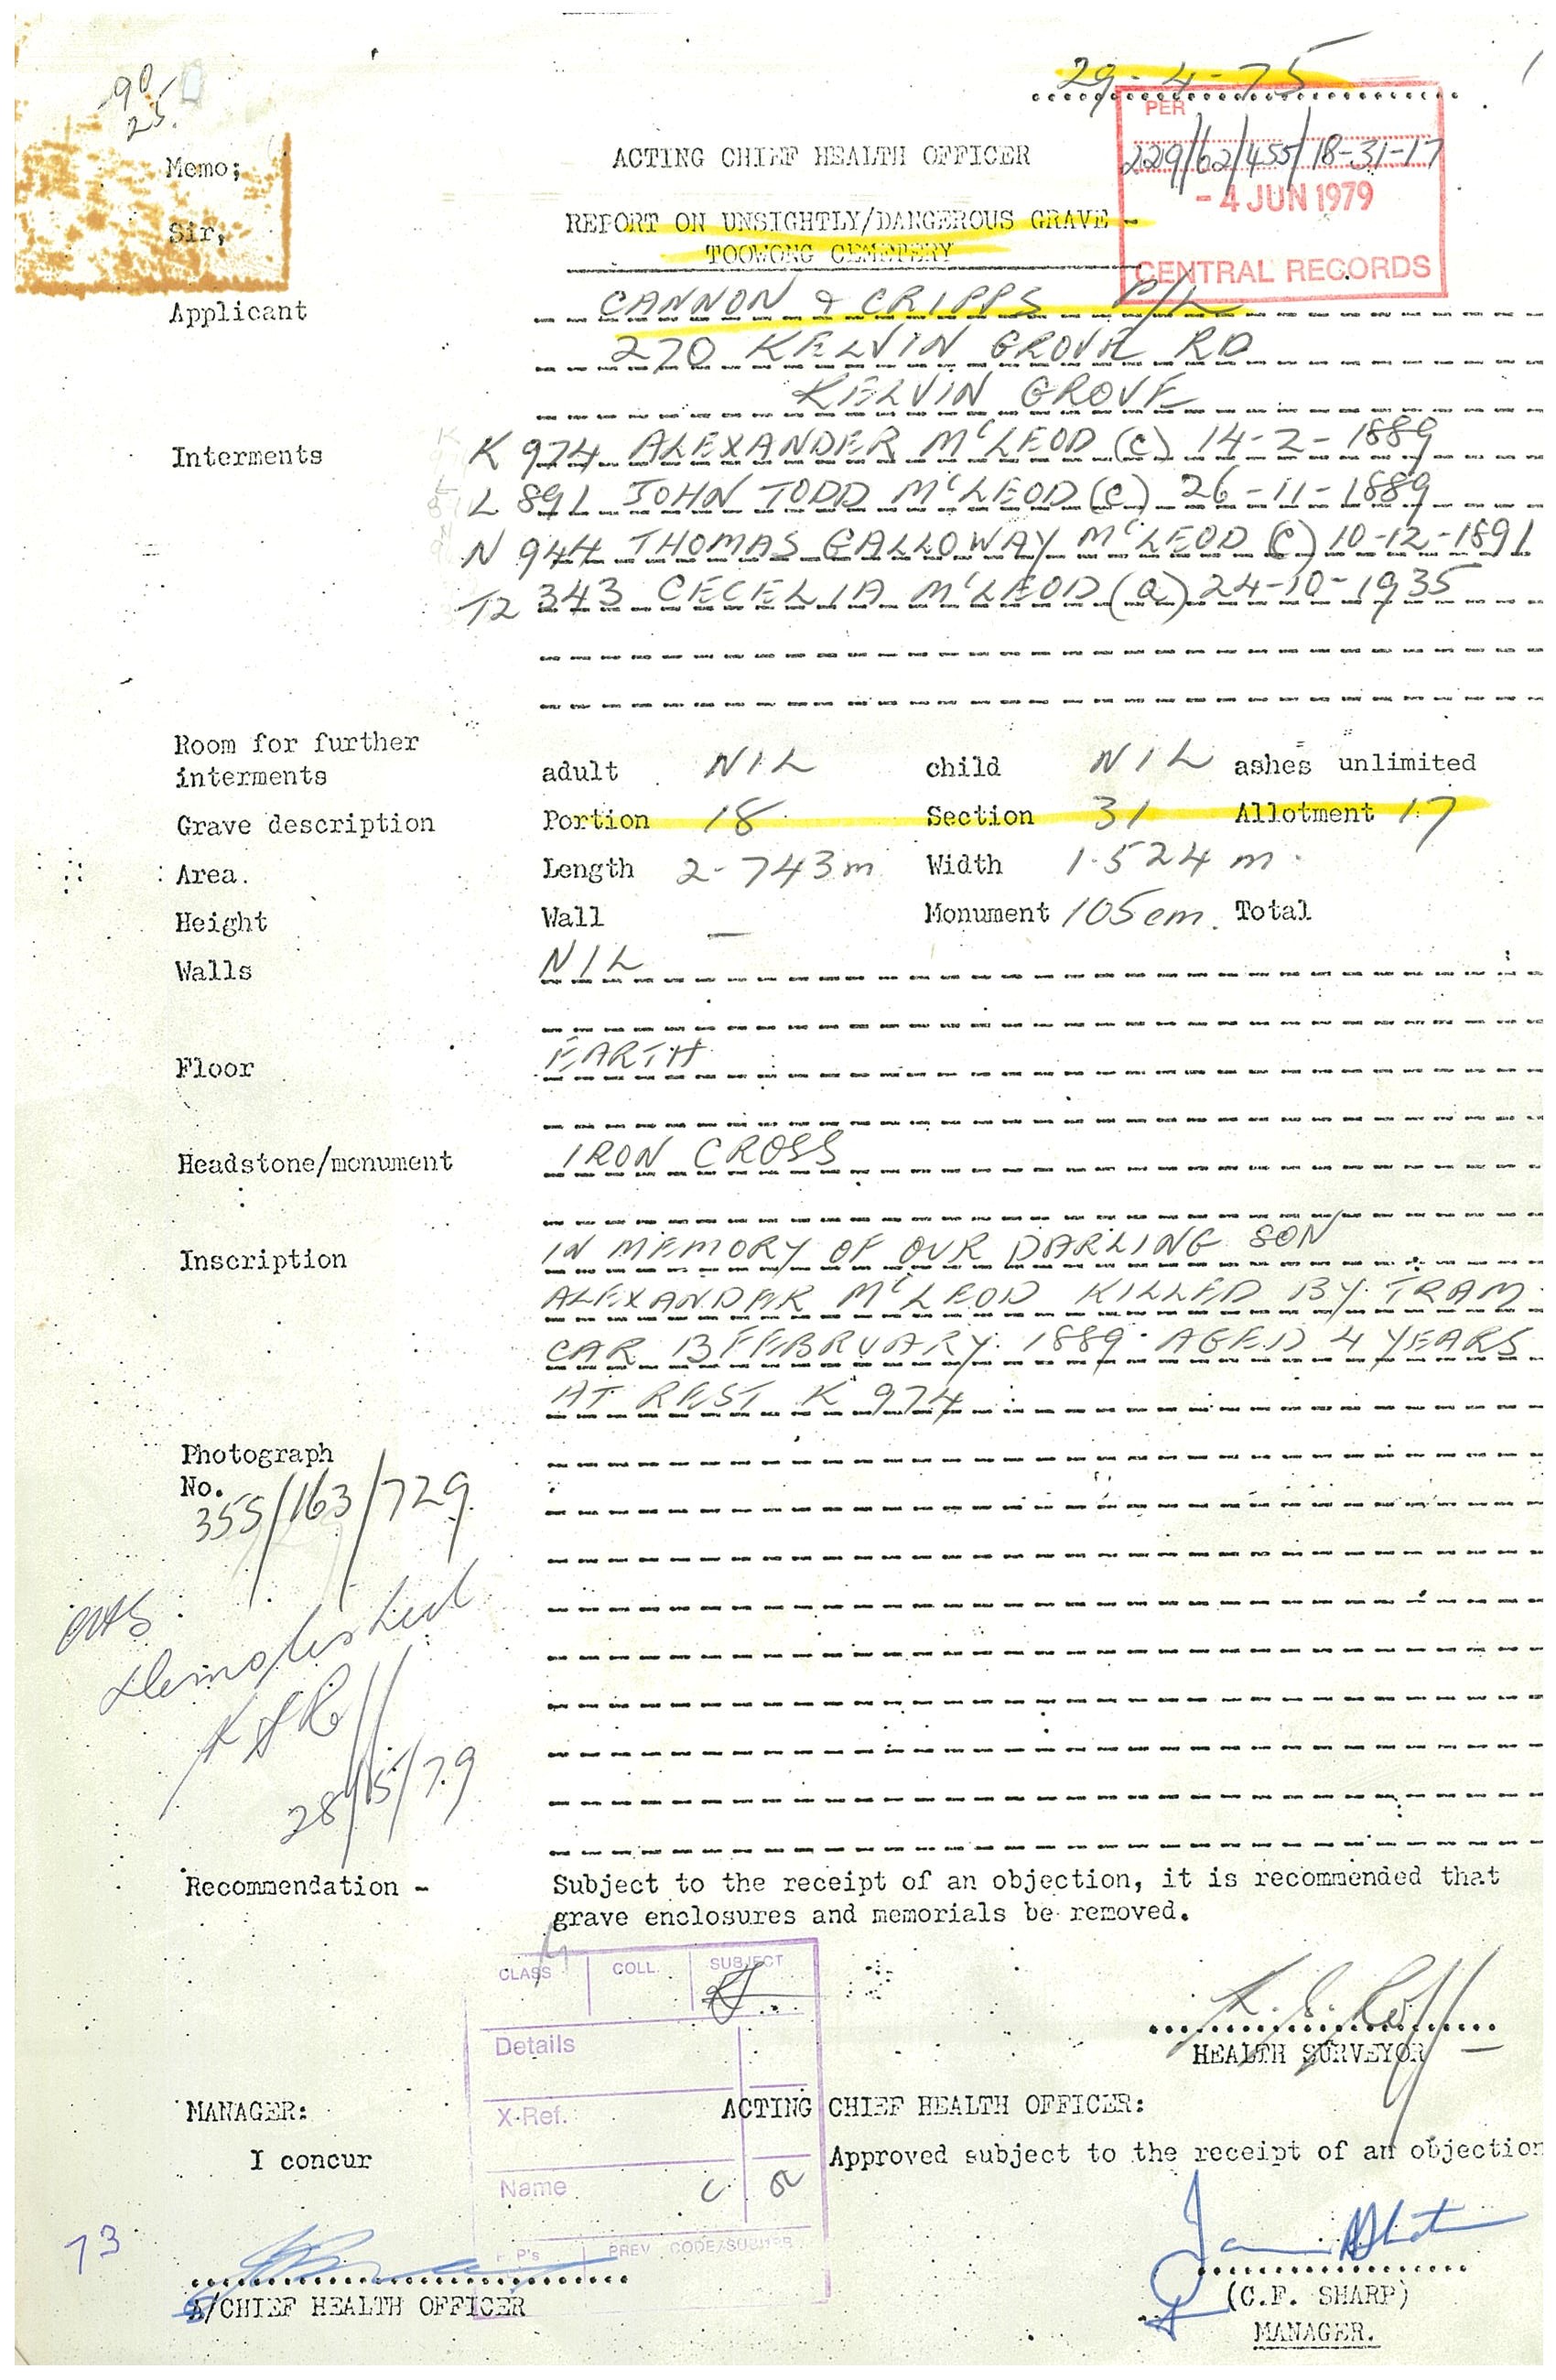 90
25.
29-4-75
PER
229/62/455/18-31-17
- 4 JUN 1979
CENTRAL RECORDS
ACTING CHIEF HEALTH OFFICER
Memo;
Sir,
REPORT ON UNSIGHTLY/DANGEROUS GRAVE -
TOOWONG CEMETERY
Applicant CANNON & CRIPPS P/L
270 KELVIN GROVE RD
KELVIN GROVE
Interments K 974 ALEXANDER McLEOD (C) 14-2-1889
L 891 JOHN TODD McLEOD (C) 26-11-1889
N 944 THOMAS GALLOWAY McLEOD (C) 10-12-1891
T2 343 CECELIA McLEOD (A) 24-10-1935
Room for further
interments adult NIL child NIL ashes unlimited
Grave description Portion 18 Section 31 Allotment 17
Area. Length 2.743m Width 1.524 m.
Height Wall — Monument 105cm. Total
Walls NIL
Floor EARTH
Headstone/monument IRON CROSS
Inscription IN MEMORY OF OUR DARLING SON
ALEXANDER McLEOD KILLED BY TRAM
CAR 13 FEBRUARY 1889 AGED 4 YEARS
AT REST K 974
Photograph
No.
355/163/729
Demolished
28/5/79
Recommendation - Subject to the receipt of an objection, it is recommended that
grave enclosures and memorials be removed.
CLASS COLL. SUBJECT
Details
X-Ref.
Name
P's PREV CODE/SUBJ
HEALTH SURVEYOR
MANAGER: ACTING CHIEF HEALTH OFFICER:
I concur Approved subject to the receipt of an objection
73
A/CHIEF HEALTH OFFICER
(C.F. SHARP)
MANAGER.